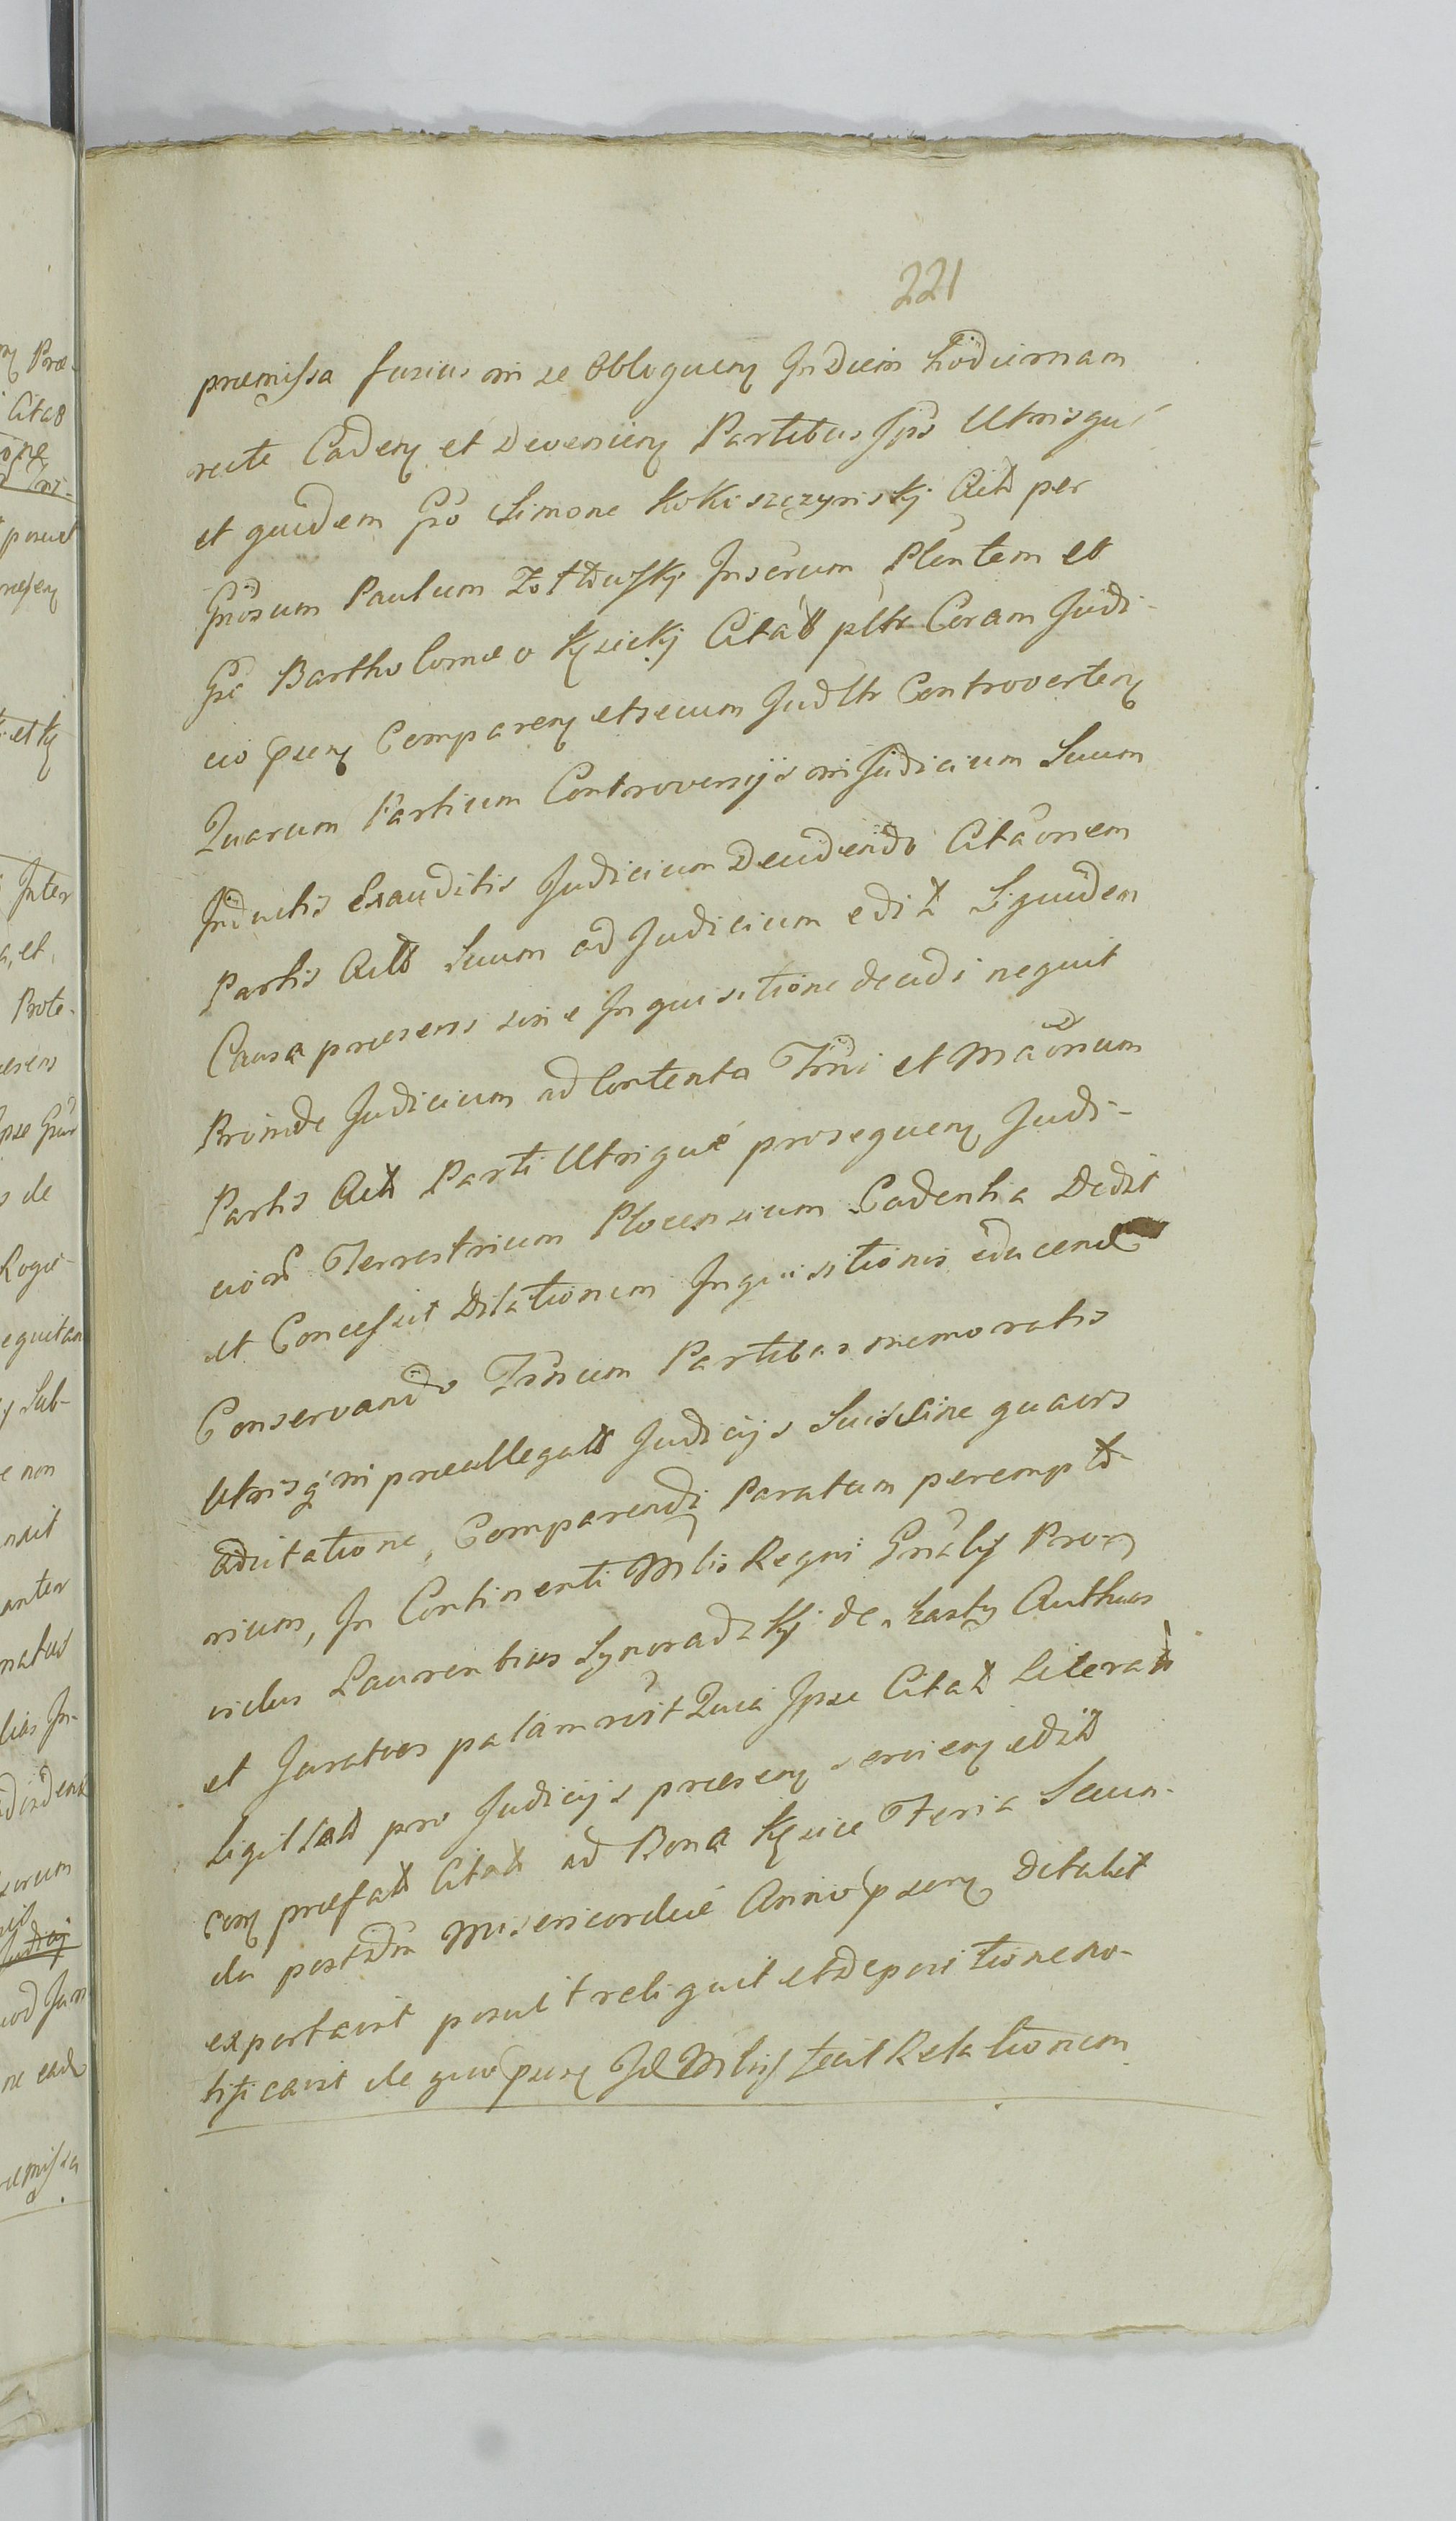 221
præmissa fusius in se obloquen̄ In Diem hodiernam
recte Caden̄ et Devenien̄ Partibus Ip̄is Utrisque
et quidem Gn̄o Simone Kokoszczynskj Act̄ per
Gn̄osum Paulum Zołtowskj Inscrum Pl̄entem et
Gn̄o Bartholomæo Kęsickj Citat̄ pl̄tr Coram Judi-
cio p̄sen̄ Comparen̄ et secum Judl̄tr Controverten̄
Quarum Partium Controversijs in Judicium Suum
Inductis Exauditis Judicium Decidendo Citāonem
Partis Act̄ Suum ad Judicium edit̄ Siquidem
Causa præsens sine Inquisitione decidi nequit
Proinde Judicium ad Contenta Tm̄ni et Māonum
Partis Act̄ Parti Utrique prosequen̄ Judi-
cior̄ Terrestrium Plocensium Cadentia Dedit
et Concessit Dilationem Inquisitionis educend̄
Conservando Tm̄num Partibus memoratis
Utrisq̄ in præallegat̄ Judicijs Suis Sine quavis
adcitatione, Comparendi Paratum perempto-
rium, In Continenti Ml̄is Regni Gn̄alis Pro-
vidus Laurentius Synoradzkj de Łasty Authus
et Juratus palam rēit Quia Ipse Citat̄ Literat̄
Sigillat̄ pro Judicijs præsen̄ servien̄ edit̄
con̄ præfat̄ Citat̄ ad Bona Kęsice Feria Secun-
da post Dm̄ Misericordiæ Anno p̄sen̄ Detulit
exportavit posuit reliquit et depositione no-
tificavit de quo p̄sen̄ Id Ml̄is fecit Relationem